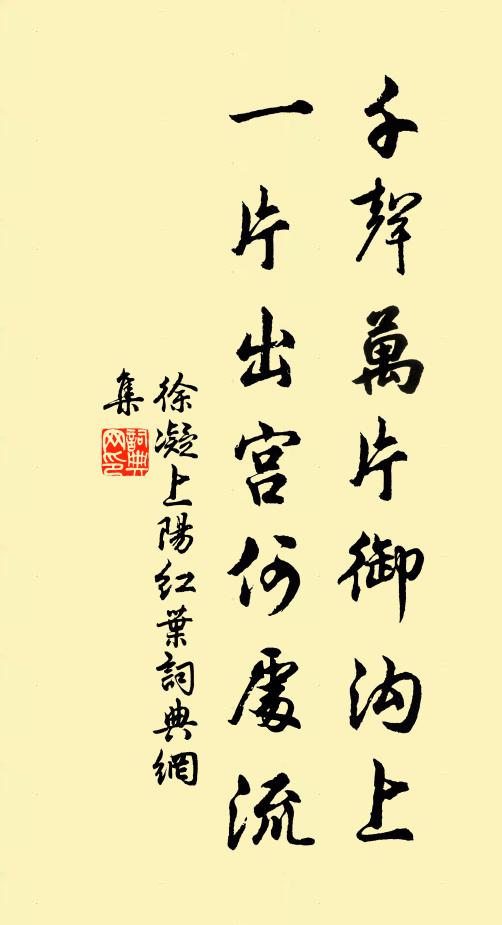 千聲萬片御沟上
一片出宫何處流
徐凝上陽红葉詞典網
集
詞典网印